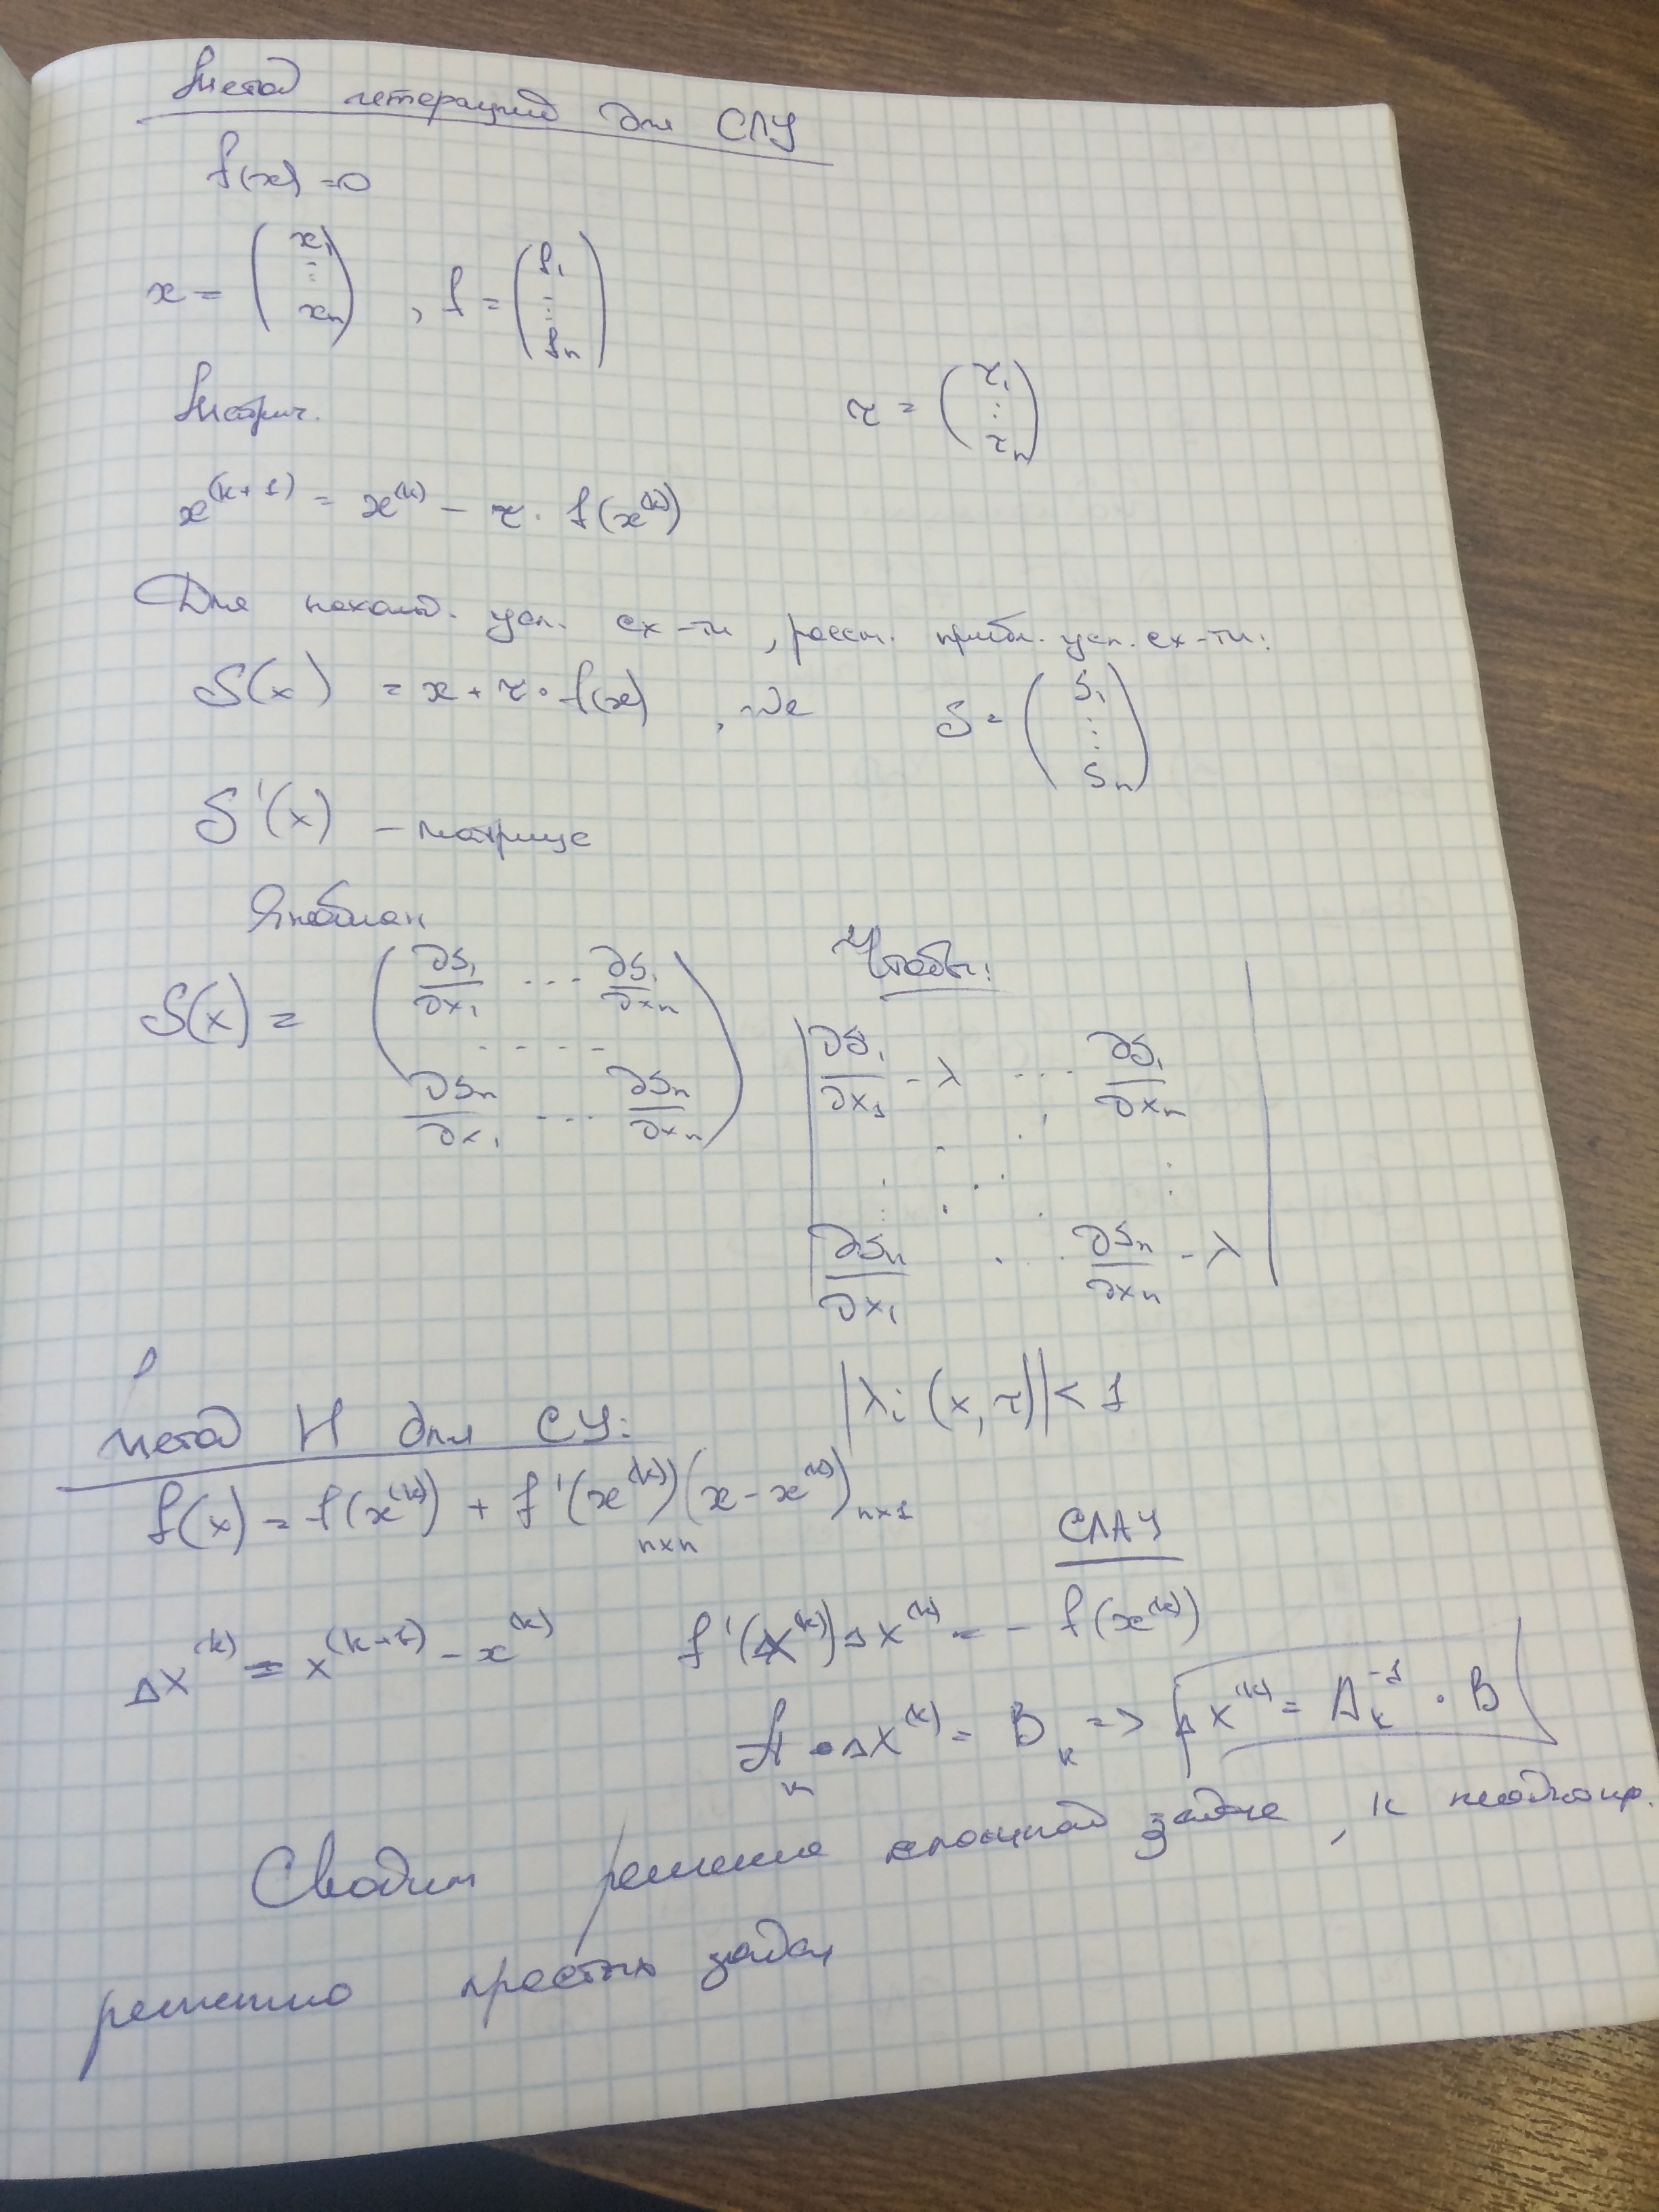 Метод итераций для СЛУ
f(x) = 0
x = (x₁ ... xₙ), f = (f₁ ... fₙ)
Матрич. τ = (τ₁ ... τₙ)
x^(k+1) = x^(k) - τ · f(x^(k))
Для нахожд. усл. сх-ти, рассм. прибл. усл. сх-ти:
S(x) = x + τ · f(x), где S = (S₁ ... Sₙ)
S'(x) - матрица
Якобиан
S(x) = (∂S₁/∂x₁ ... ∂S₁/∂xₙ ..... ∂Sₙ/∂x₁ ... ∂Sₙ/∂xₙ)
Чтобы:
|∂S₁/∂x₁ - λ ... ∂S₁/∂xₙ ... ∂Sₙ/∂x₁ ... ∂Sₙ/∂xₙ - λ|
|λᵢ(x, τ)| < 1
Метод Н для СУ:
f(x) = f(x^(k)) + f'(x^(k))ₙₓₙ (x - x^(k))ₙₓ₁
СЛАУ
Δx^(k) = x^(k+1) - x^(k) f'(x^(k)) Δx^(k) = - f(x^(k))
Aₖ · Δx^(k) = Bₖ => Δx^(k) = Aₖ^-1 · B
Сводим решение сложной задачи, к
решению простых задач